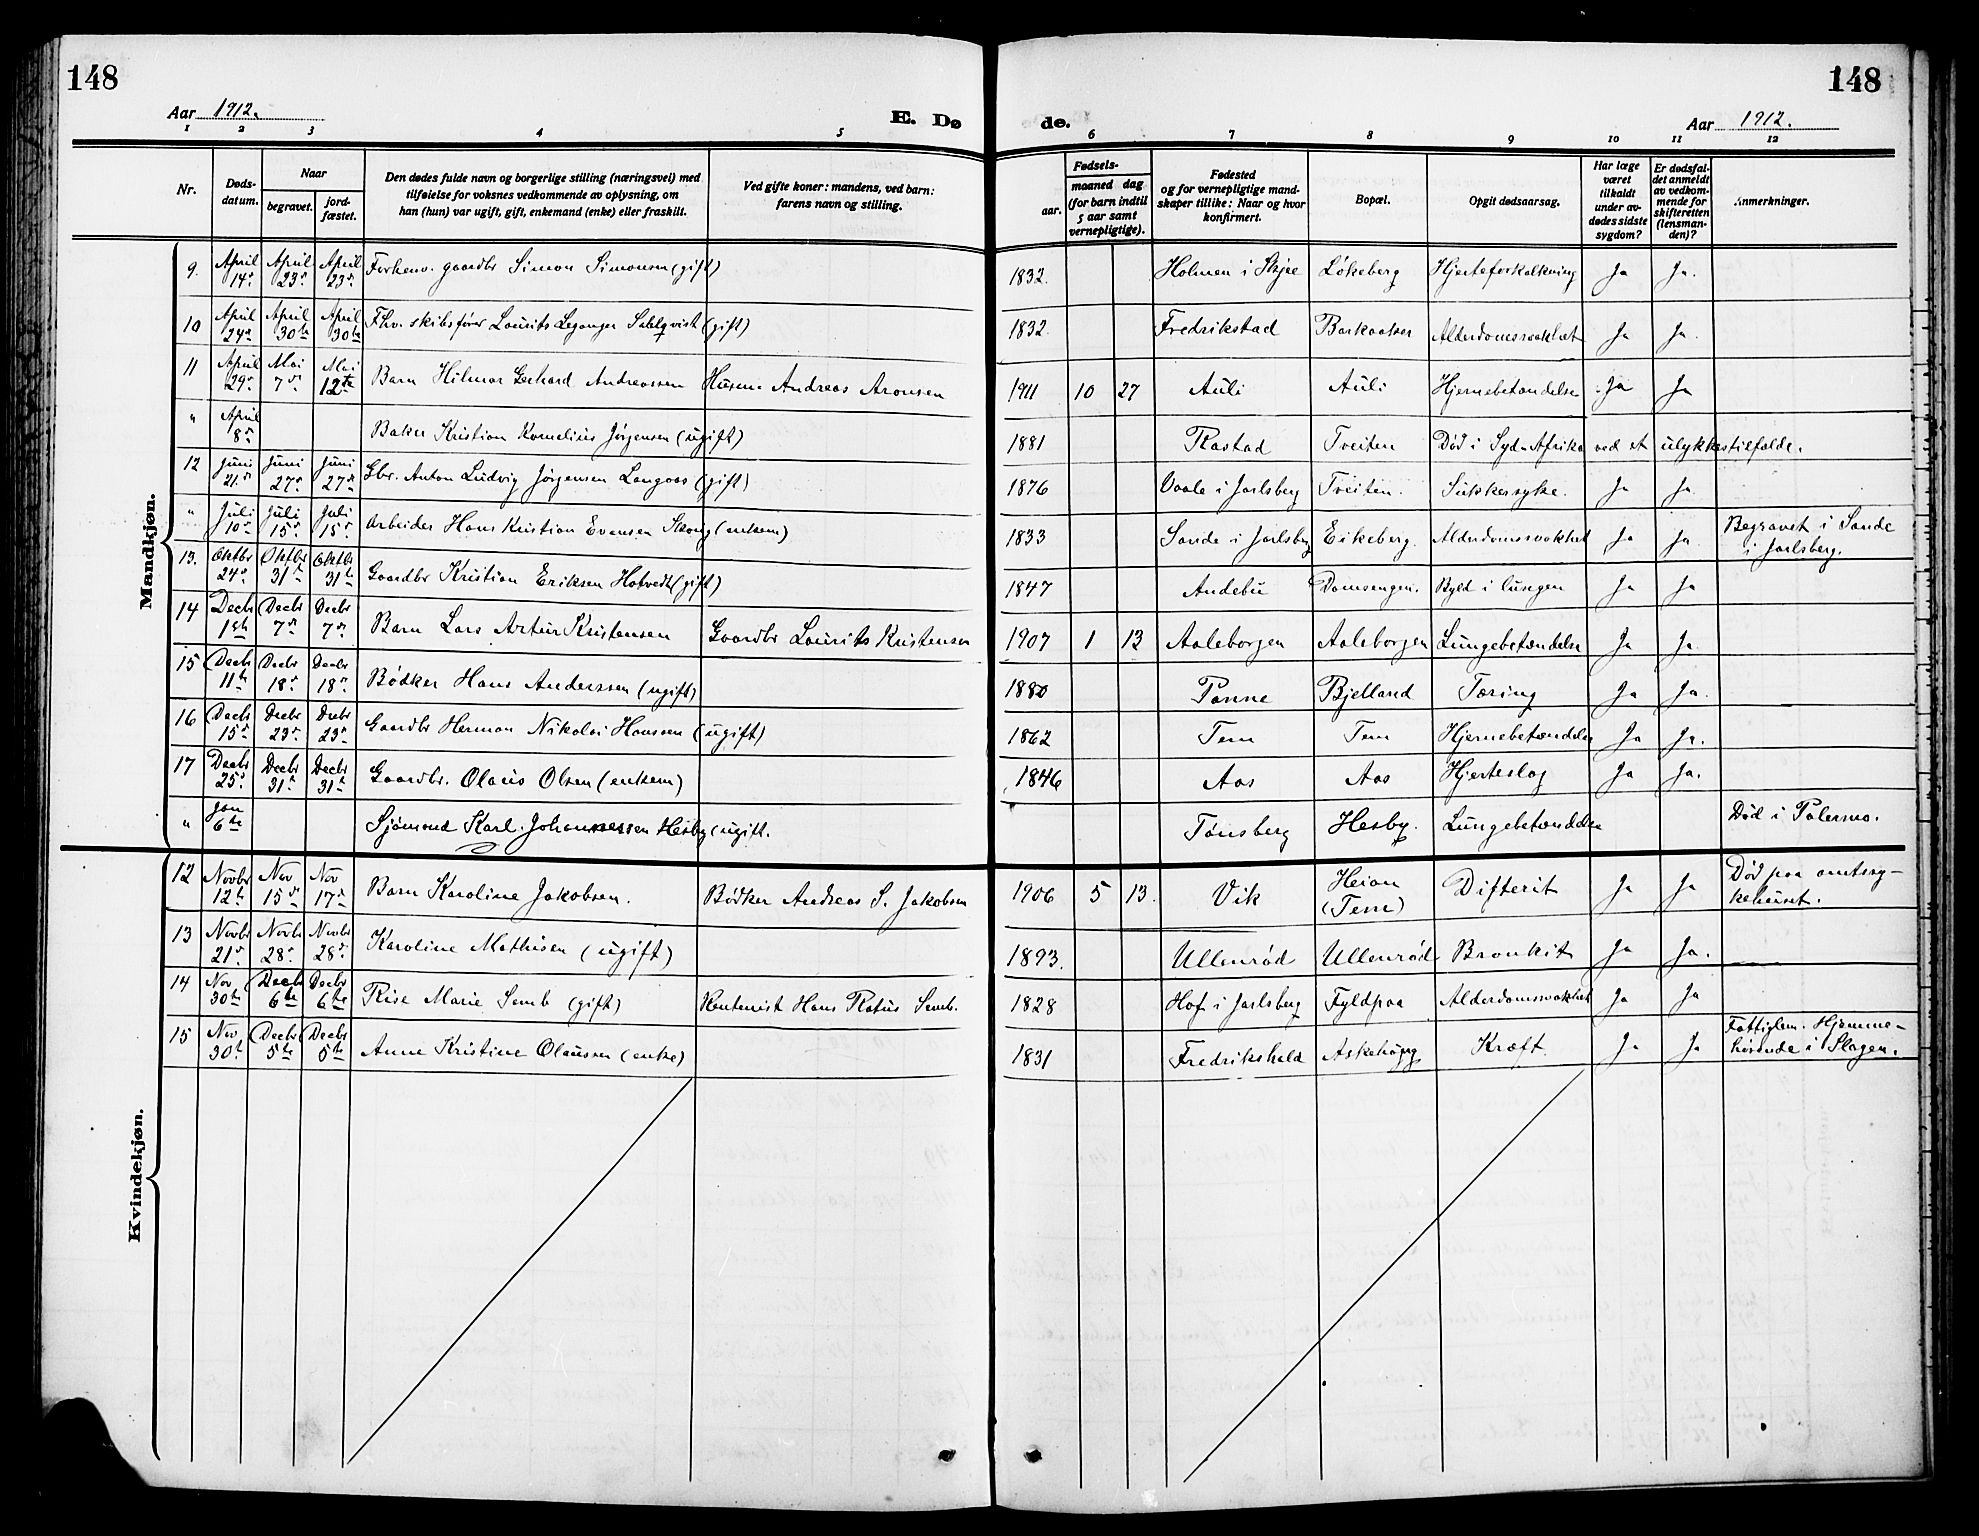 148
148
Aar 1912.
E. Dø
de.
Aar 1912.
1 2 3 4 5 6 7 8 9 10 11 12
Nr.
Døds-
datum.
Naar
begravet.
jord-
fæstet.
Den dødes fulde navn og borgerlige stilling (næringsvei) med
tilføielse for voksnes vedkommende av oplysning, om
han (hun) var ugift, gift, enkemand (enke) eller fraskilt.
Ved gifte koner: mandens, ved barn:
farens navn og stilling.
Fødsels-
aar.
maaned dag
(for barn indtil
5 aar samt
vernepligtige).
Fødested
og for vernepligtige mand-
skaper tillike: Naar og hvor
konfirmert.
Bopæl.
Opgit dødsaarsag.
Har læge
været
tilkaldt
under av-
dødes sidste
sygdom?
Er dødsfal-
det anmeldt
av vedkom-
mende for
skifteretten
(lensman-
den)?
Anmerkninger.
Mandkjøn.
9. April 14de April 23de April 23de Forhenv. gaardbr Simon Simonsen (gift) 1832. Holmen i Skjee Løkeberg Hjerteforkalkning Ja Ja.
10 April 24de April 30te April 30te Fhv. skibsfører Lourits Leganger Sahlqvist (gift) 1832. Fredrikstad Barkaaker Alderdomssvakhet Ja Ja.
11 April 29de Mai 7de Mai 12te Barn Hilmar Gerhard Andreassen Husm. Andreas Aronsen 1911 10 27 Auli Auli Hjernebetændelse Ja Ja
" April 8de Baker Kristian Kornelius Jørgensen (ugift) 1881 Rastad Tveiten Død i Syd-Afrika ved et ulykkestilfælde.
12 Juni 21de Juni 27de Juni 27de Gbr. Anton Ludvig Jørgensen Langaas (gift) 1876 Vaale i Jarlsberg Tveiten. Sukkersyke. Ja Ja
" Juli 10de Juli 15de Juli 15de Arbeider Hans Kristian Evensen Skoug (enkem) 1833 Sande i Jarlsberg Eikeberg. Alderdomssvakhet Ja Ja Begravet i Sande
i Jarlsberg.
13. Oktbr 24de Oktbr 31te Oktbr 31te Gaardbr Kristian Eriksen Hotvedt (gift) 1847 Andebu Domsengen. Byld i lungen Ja Ja
14 Decbr 1ste Decbr 7de Decbr 7de Barn Lars Artur Kristensen Gaardbr Lourits Kristensen 1907 1 13 Aaleborgen Aaleborgen Lungebetændelse Ja Ja.
15 Decbr 11te Decbr 18de Decbr 18de Bødker Hans Anderssen (ugift) 1880 Panne Bjelland Tæring Ja Ja.
16 Decbr 15de Decbr 23de Decbr 23de Gaardbr Herman Nikolai Hanssen (ugift) 1862 Tem Tem Hjernebetændelse Ja Ja.
17 Decbr 25de Decbr 31te Decbr 31te Gaardbr. Olaus Olsen (enkem) 1846 Aas Aas Hjerteslag Ja Ja.
" Jan 6te Sjømand Karl Johannessen Hesby (ugift. Tønsberg Hesby. Lungebetændelse Død i Palermo.
Kvindekjøn.
12 Novbr 12te Nov 15de Nov 17de Barn Karoline Jakobsen. Bødker Andreas S. Jakobsen 1906 5 13. Vik Heian
(Tem) Difterit Ja Ja Død paa amtssy-
kehuset.
13 Novbr 21de Novbr 28de Novbr 28de Karoline Mathisen (ugift) 1893. Ullenrød Ullenrød Bronkit Ja Ja.
14 Nov 30te Decbr 6te Decbr 6te Rise Marie Semb (gift) Rentenist Hans Ratus Semb. 1828 Hof i Jarlsberg Fyldpaa Alderdomssvakhet Ja Ja
15 Nov 30te Decbr 5te Decbr 5te Anne Kristine Olaussen (enke) 1831 Fredrikshald Askehøug Kræft Ja Ja Fattiglem. Hjemme-
hørende i Slagen.